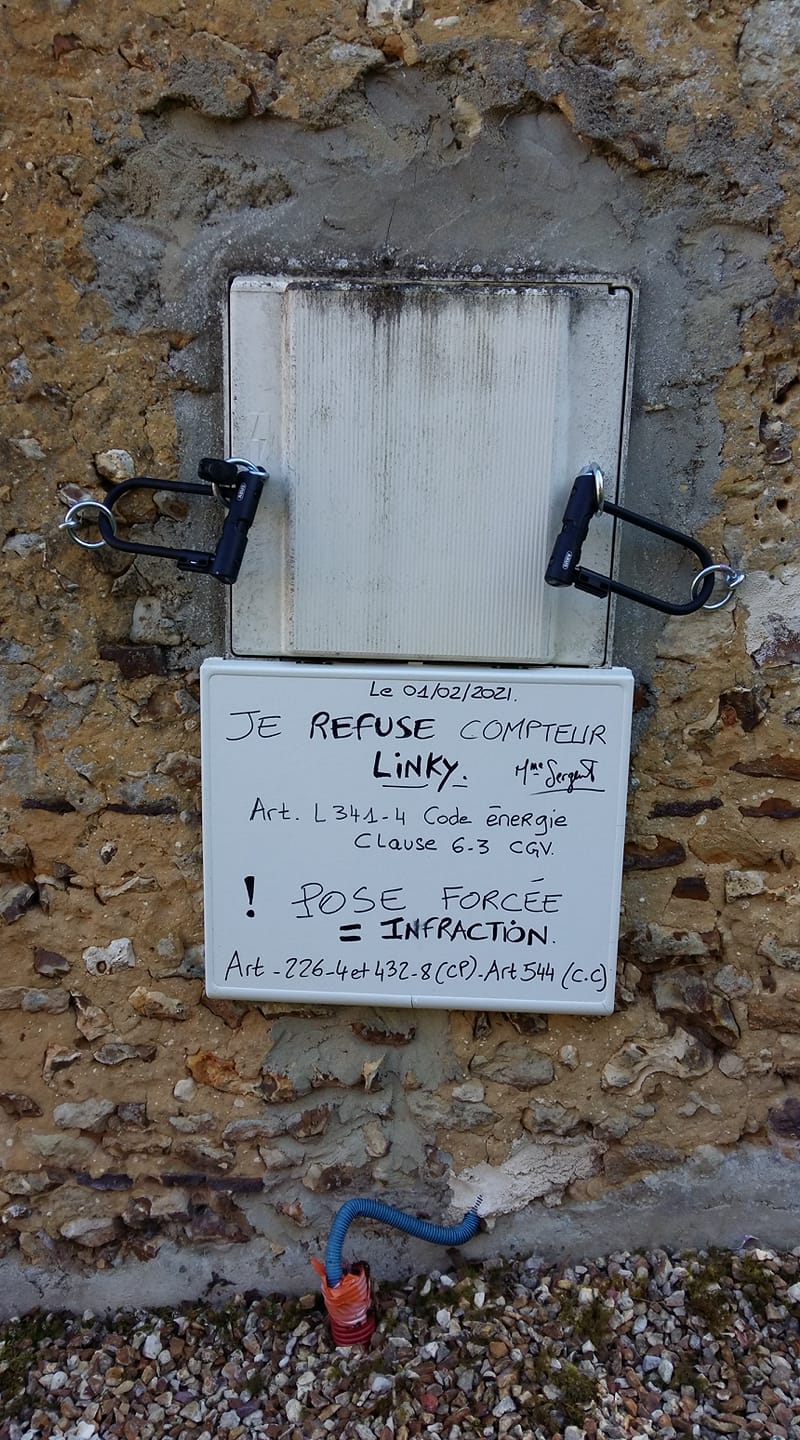 Le 01/02/2021.
JE REFUSE COMPTEUR
LiNKY. Mme Sergent
Art. L341-4 Code énergie
Clause 6-3 CGV.
! POSE FORCÉE
= INFRACTION.
Art-226-4 et 432-8(CP)-Art 544 (C.C)